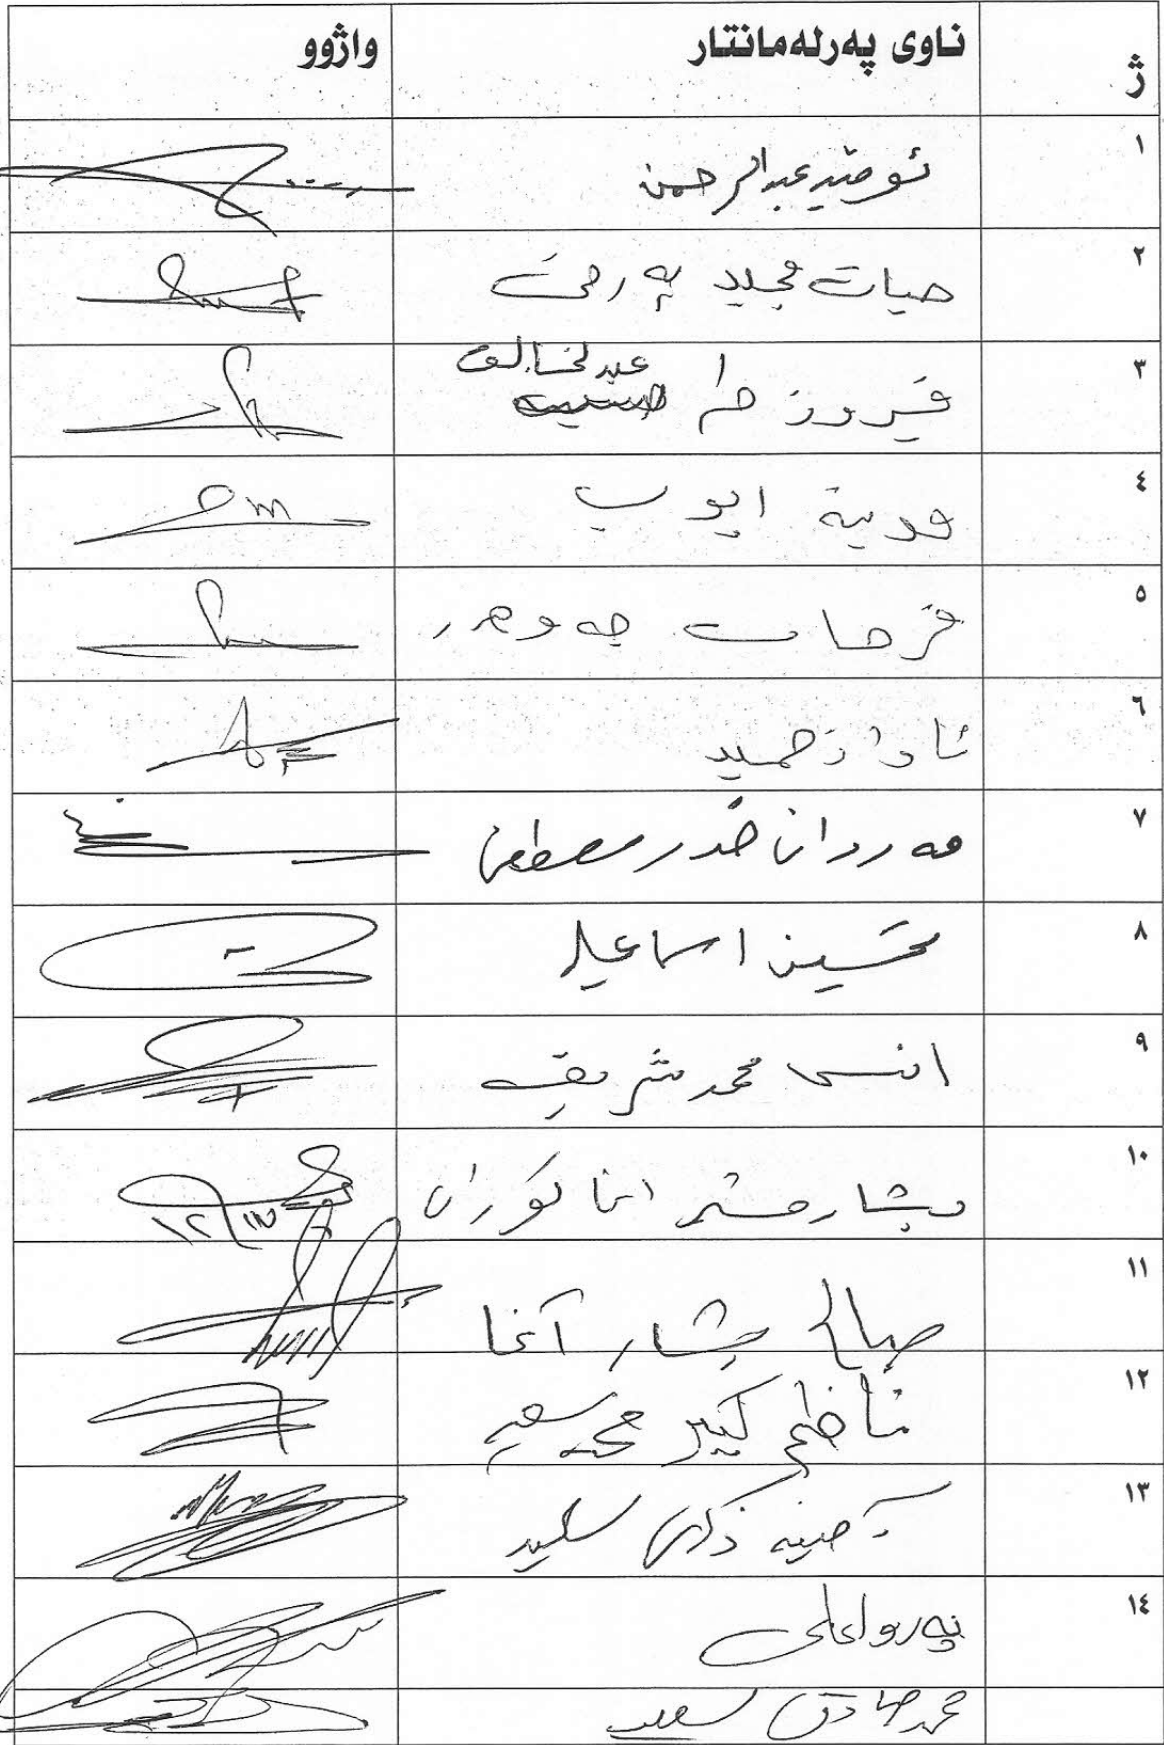 ژ ناوی پەرلەمانتار واژوو
١ ئومێد عبدالرحمن
٢ حیات مجید
٣ فیروز طه عبدالخالق
٤ ایوب
٥ فرحات جەوهەر
٦ ئاواز حمید
٧ مەردان خدر مصطفى
٨ تحسین اسماعیل
٩ انس محمد شریف
١٠ بشار مشیر اغا گوران
١١ صالح بشار آغا
١٢ ناظم كبیر محمد سعید
١٣ آمینە ذكری سعید
١٤ پەروا علی
محمد صادق سعید